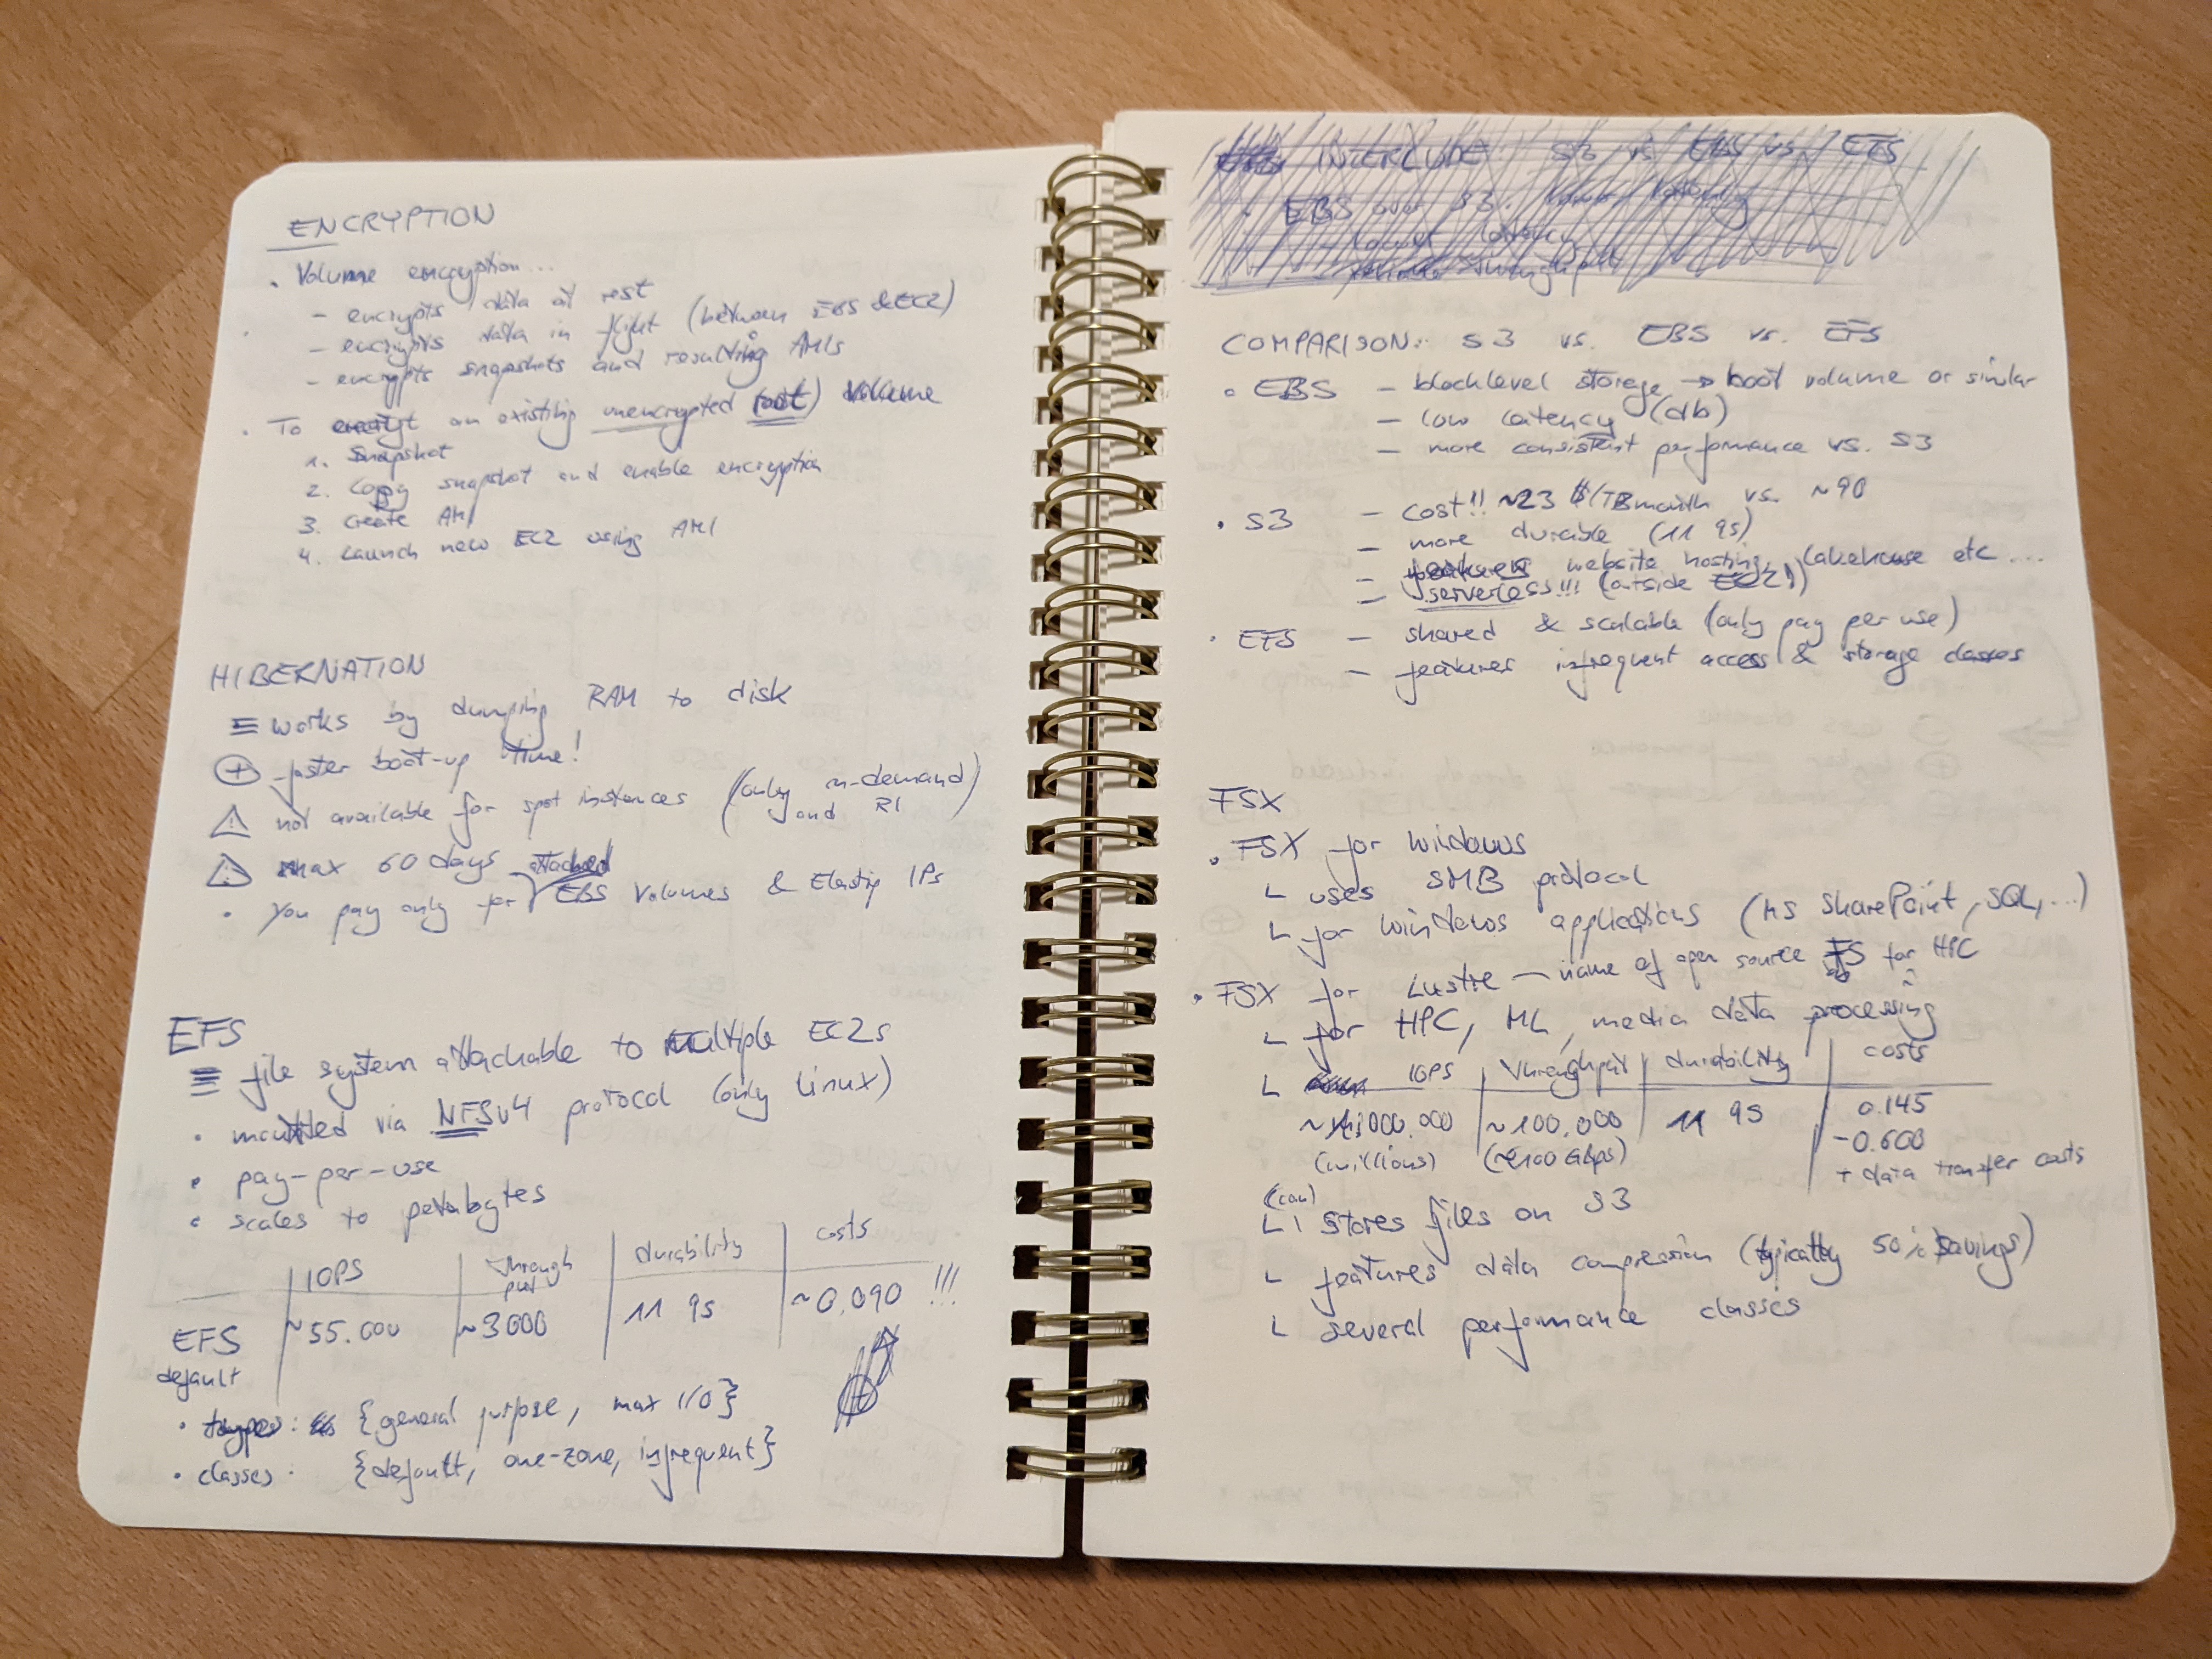 ENCRYPTION
• Volume encryption...
- encrypts data at rest
- encrypts data in flight (between EBS & EC2)
- encrypts snapshots and resulting AMIs
• To encrypt an existing unencrypted (root) volume
1. Snapshot
2. Copy snapshot and enable encryption
3. Create AMI
4. Launch new EC2 using AMI
HIBERNATION
≡ works by dumping RAM to disk
⊕ faster boot-up time!
⚠ not available for spot instances (only on-demand and RI)
⚠ max 60 days
• You pay only for attached EBS Volumes & Elastic IPs
EFS
≡ file system attachable to multiple EC2s
• mounted via NFSv4 protocol (only Linux)
• pay-per-use
• scales to petabytes
IOPS | Through put | durability | costs
EFS default | ~55.000 | ~3000 | 11 9s | ~0.090 !!!
• types: {general purpose, max I/O}
• classes: {default, one-zone, infrequent}
INTERLUDE: S3 vs EBS vs EFS
• EBS over S3: lower latency
- lower latency
COMPARISON: S3 vs. EBS vs. EFS
• EBS - blocklevel storage → boot volume or similar
- low latency (db)
- more consistent performance vs. S3
• S3 - cost!! ~23 $/TBmonth vs. ~90
- more durable (11 9s)
- features website hosting, lakehouse etc...
- serverless!!! (outside EC2!)
• EFS - shared & scalable (only pay per use)
- features infrequent access & storage classes
FSX
• FSX for windows
L uses SMB protocol
L for windows applications (MS SharePoint, SQL, ...)
• FSX for Lustre — name of open source FS for HPC
L for HPC, ML, media data processing
L IOPS | Throughput | durability | costs
~1.000.000 | ~100.000 | 11 9s | 0.145
(millions) (~100 Gbps) -0.600
+ data transfer costs
(can)
L stores files on S3
L features data compression (typically 50% savings)
L several performance classes